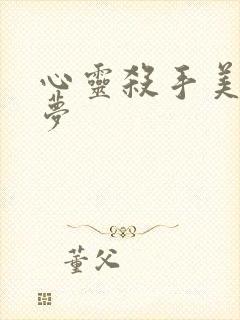 心靈殺手美
夢
董父